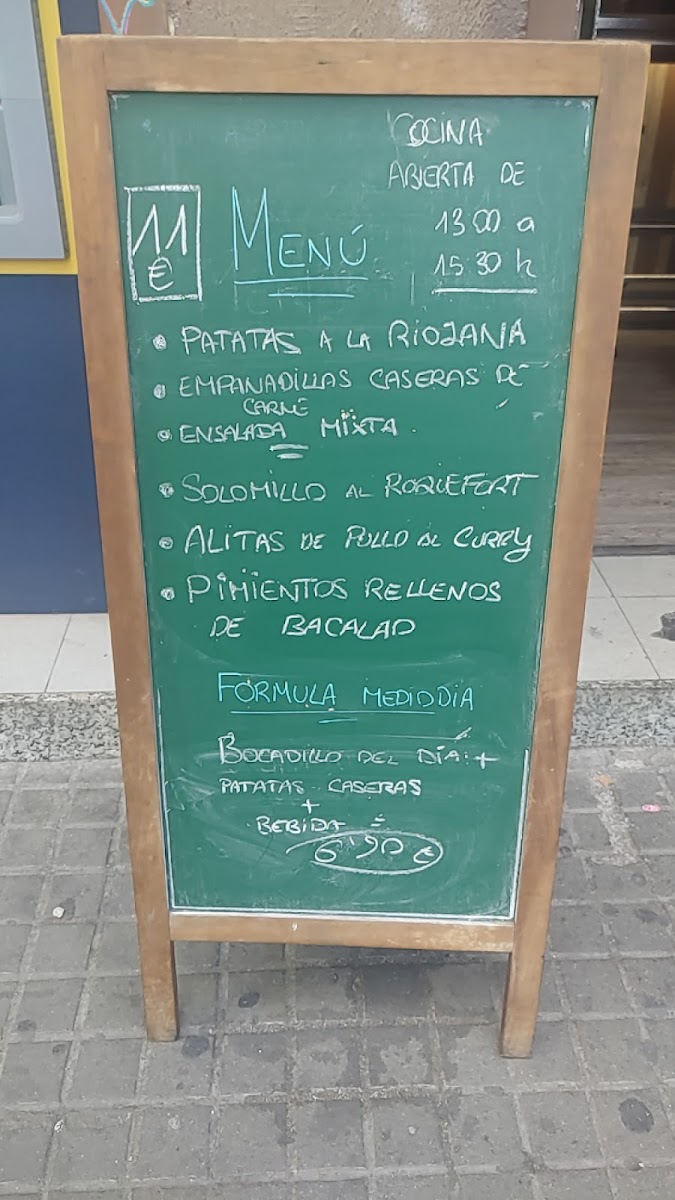 COCINA
ABIERTA DE
13 00 a
15 30 h
11
€
MENÚ
• PATATAS A LA RIOJANA
• EMPANADILLAS CASERAS DE
CARNE
• ENSALADA MIXTA
• SOLOMILLO AL ROQUEFORT
• ALITAS DE POLLO AL CURRY
• PIMIENTOS RELLENOS
DE BACALAO
FORMULA MEDIODIA
BOCADILLO DEL DÍA +
PATATAS CASERAS
+
BEBIDA =
6'90 €